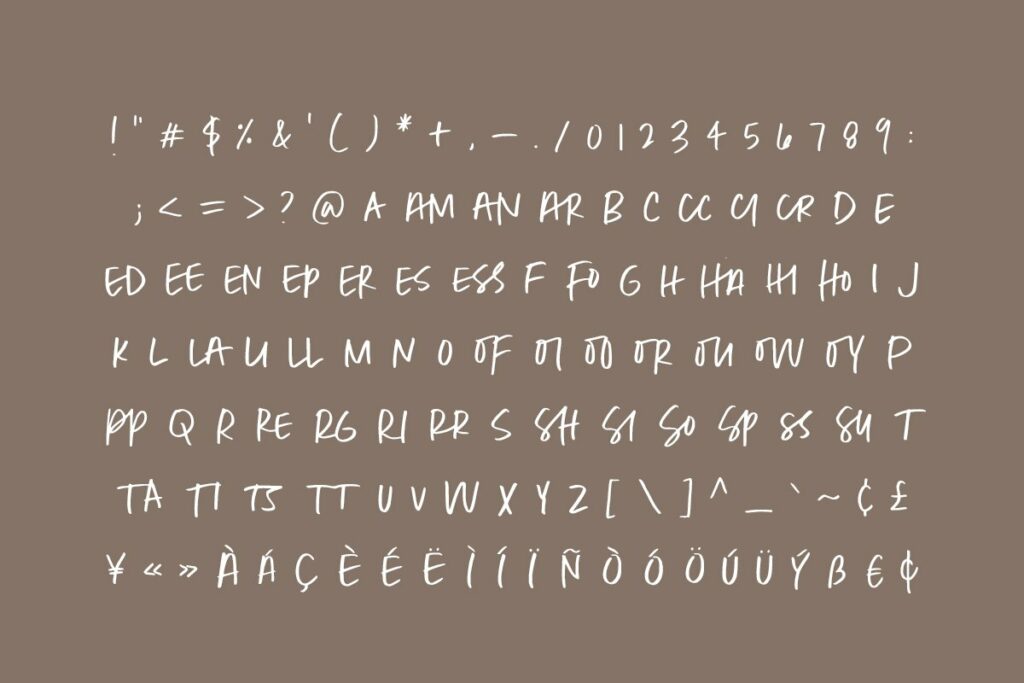 ! " # $ % & ' ( ) * + , - . / 0 1 2 3 4 5 6 7 8 9 :
; < = > ? @ A AM AN AR B C CC CI CR D E
ED EE EN EP ER ES ESS F FO G H HA HI HO I J
K L LA LI LL M N O OF OI OO OR OU OW OY P
PP Q R RE RG RI RR S SH SI SO SP SS SU T
TA TI TS TT U V W X Y Z [ \ ] ^ _ ` ~ ¢ £
¥ « » À Á Ç È É Ë Ì Í Ï Ñ Ò Ó Ö Ú Ü Ý ß € ¢